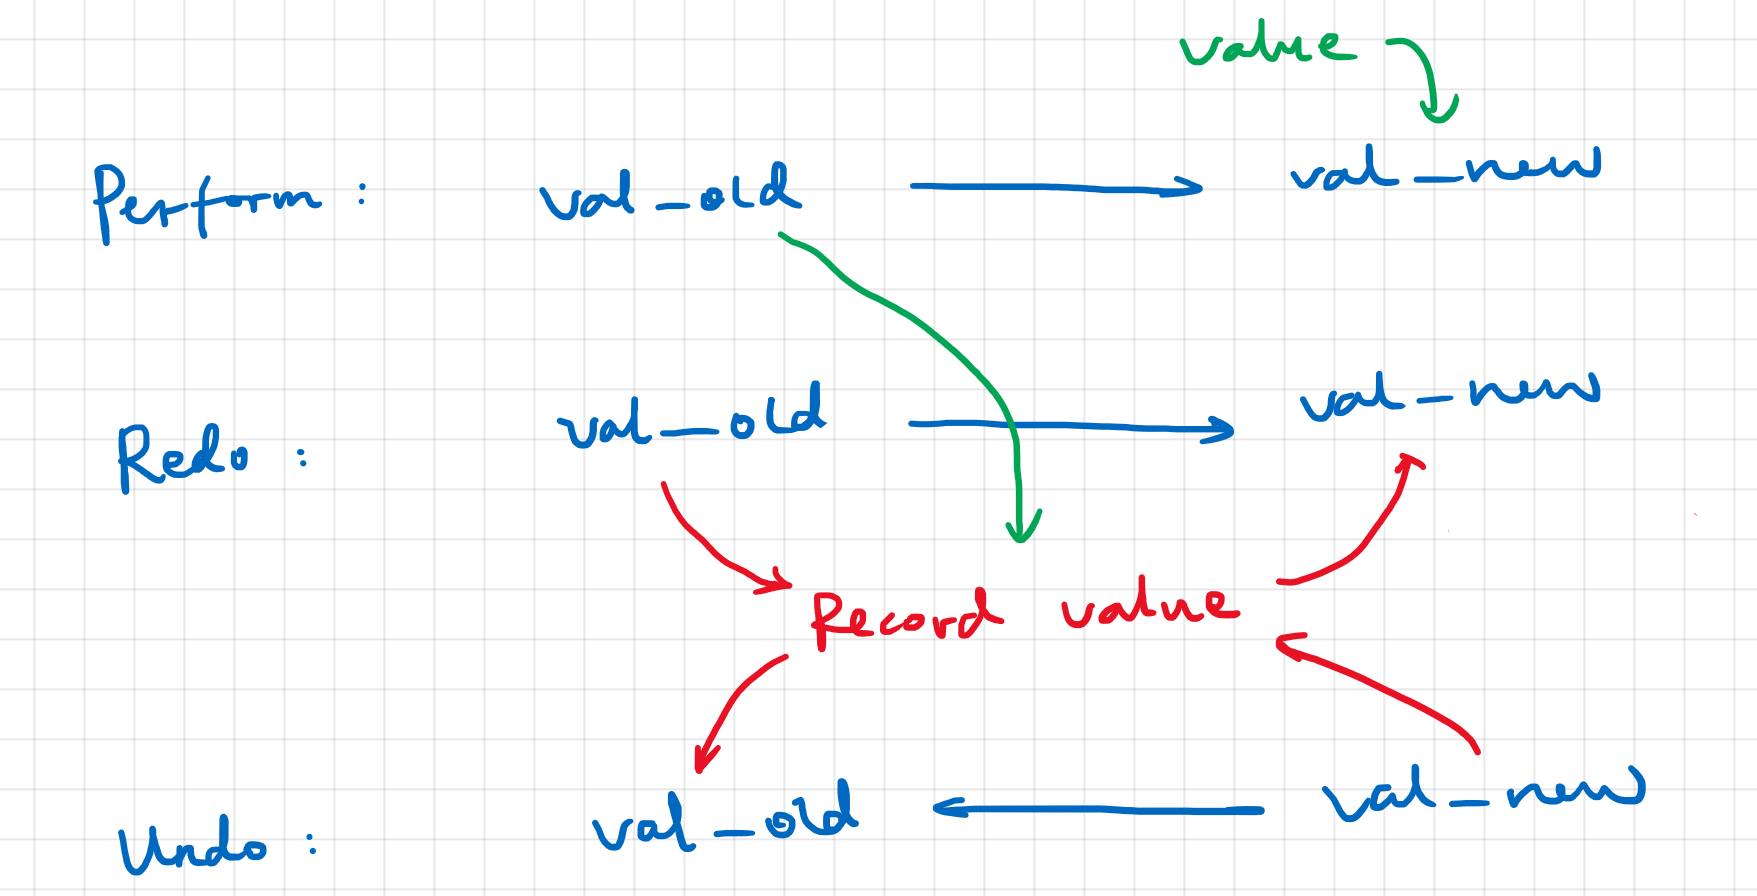 value
Perform : val_old val_new
Redo : val_old val_new
Record value
Undo : val_old val_new